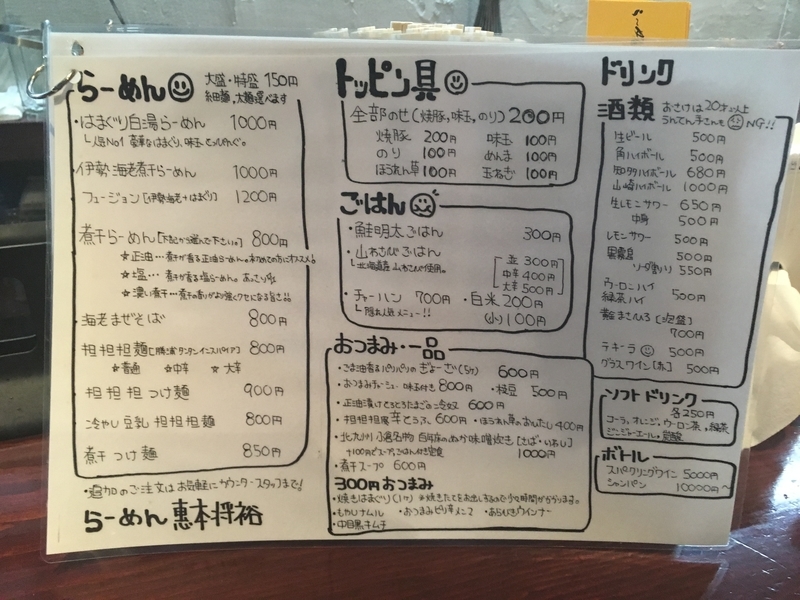 らーめん
大盛・特盛 150円
細麺、太麺選べます
・はまぐり白湯らーめん 1000円
人気No1 豪華なはまぐり、味玉、
伊勢海老煮干らーめん 1000円
フュージョン[伊勢海老+はまぐり] 1200円
煮干らーめん[下記から選んで下さい。] 800円
☆正油…煮干が香る正油らーめん。初めての方にオススメ!
☆塩…煮干が香る塩らーめん。あっさり
☆濃い煮干…煮干の香りがより強くクセになる旨さ!!
海老まぜそば 800円
担担担麺[勝浦タンタンインスパイア] 800円
☆普通 ☆中辛 ☆大辛
担担担つけ麺 900円
冷やし豆乳担担担麺 800円
煮干つけ麺 850円
・追加のご注文はお気軽にカウンタースタッフまで!
らーめん 恵本将裕
トッピン具
全部のせ(焼豚,味玉,のり) 200円
焼豚 200円 味玉 100円
のり 100円 めんま 100円
ほうれん草 100円 玉ねぎ 100円
ごはん
・鮭明太ごはん 300円
・山わさびごはん
北海道産山わさび使用。
並 300円
中辛 400円
大辛 500円
・チャーハン 700円 ・白米 200円
隠れ人気メニュー!! (小) 100円
おつまみ・一品
・ごま油香るパリパリのぎょーざ(5ヶ) 600円
・おつまみチャーシュー 味玉付き 800円 ・枝豆 500円
・正油漬けとろとろたまごの冷奴 600円
・担担担屋辛とうふ 600円 ・ほうれん草のおひたし 400円
・北九州小倉名物 百年床のぬか味噌炊き[さば・いわし]
+100円でスープ、ごはん付き定食 1000円
・煮干スープ 600円
300円おつまみ
・焼きはまぐり(1ヶ) ※焼きたてをお出しするので少々時間がかかります。
・もやしナムル ・おつまみピリ辛メンマ ・あらびきウインナー
・中目黒キムチ
ドリンク
酒類 おさけは20才以上
うんてん手さんも NG!!
生ビール 500円
角ハイボール 500円
知多ハイボール 680円
山崎ハイボール 1000円
生レモンサワー 650円
中身 500円
レモンサワー 500円
黒霧島 500円
ソーダ割り 550円
ウーロンハイ
緑茶ハイ 500円
まさひろ[泡盛]
700円
テキーラ 500円
グラスワイン[赤] 500円
ソフトドリンク
各250円
コーラ、オレンジ、ウーロン茶、緑茶
ジンジャーエール、炭酸
ボトル
スパークリングワイン 5000円
シャンパン 10000円~